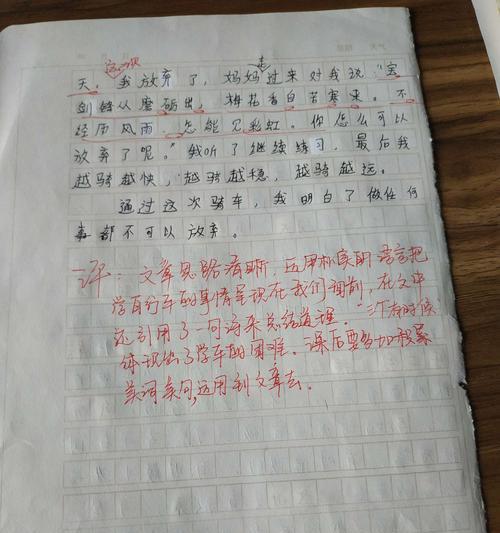 这时候
走
天，我放弃了，妈妈过来对我说："宝
剑锋从磨砺出，梅花香自苦寒来。不
经历风雨，怎能见彩虹。你怎么可以
放弃了呢。"我听了继续练习，最后我
越骑越快，越骑越稳，越骑越远。
通过这次骑车，我明白了做任何
事都不可以放弃。
评：文章思路清晰，运用朴实的语言把
学自行车的事情呈现在我们面前，在文中
还引用了一句诗来总结道理。三个有时候
体现出了学车的困难。课后要多加积累
美词美句运用到文章去。